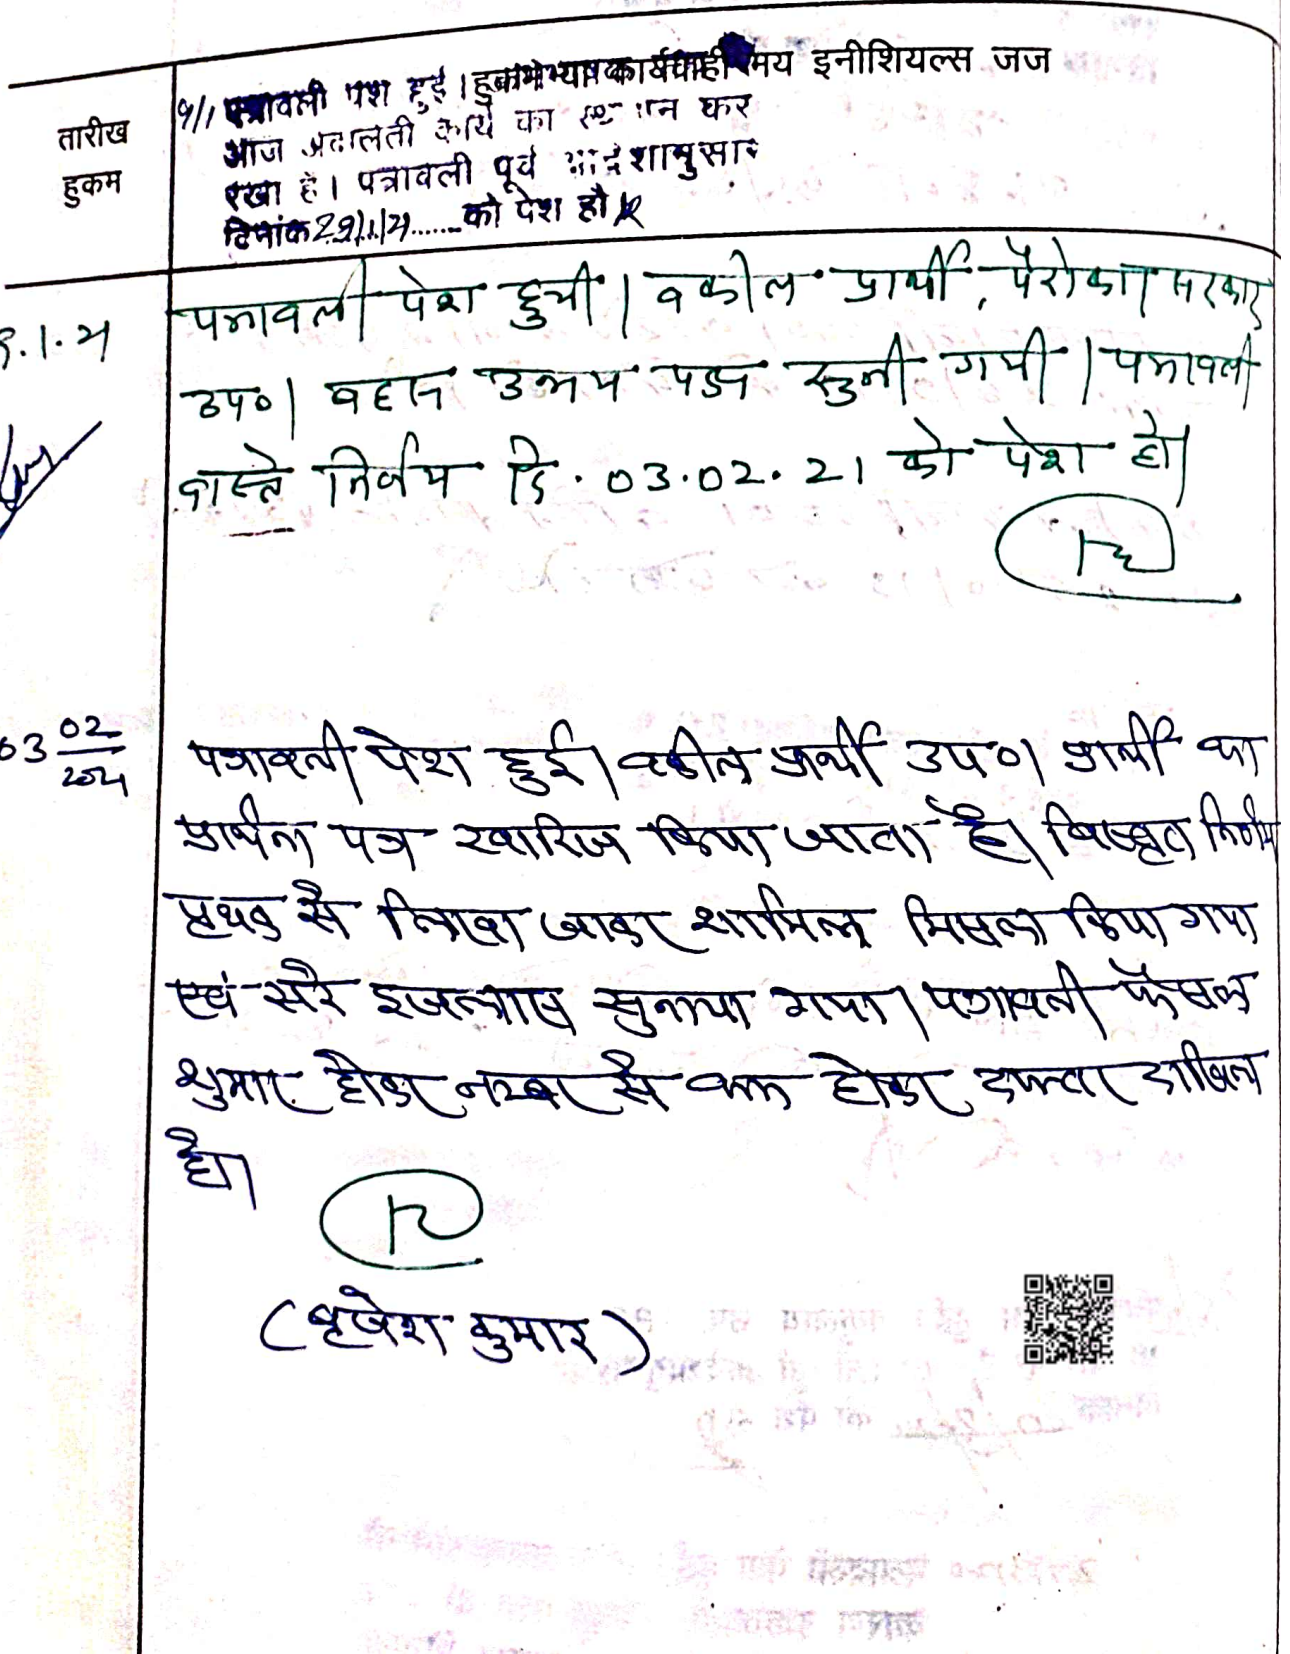 हुकम या कार्यवाही मय इनीशियल्स जज
तारीख
हुकम
9/1 पत्रावली पेश हुई।
आज अदालती कार्य का स्थगन कर
रखा है। पत्रावली पूर्व आदेशानुसार
दिनांक 29/1/21 को पेश हो
9.1.21
पत्रावली पेश हुयी। वकील प्रार्थी, पैरोकार सरकार
उप०। बहस उभय पक्ष सुनी गयी। पत्रावली
वास्ते निर्णय दि. 03.02.21 को पेश हो।
03 02
2021
पत्रावली पेश हुई। वकील प्रार्थी उप०। प्रार्थी का
प्रार्थना पत्र खारिज किया जाता है। विस्तृत निर्णय
पृथक से लिखा जाकर शामिल मिसल किया गया
एवं सरे इजलास सुनाया गया। पत्रावली फैसल
शुमार होकर नम्बर से कम होकर दफ्तर दाखिल
हो।
(बृजेश कुमार)